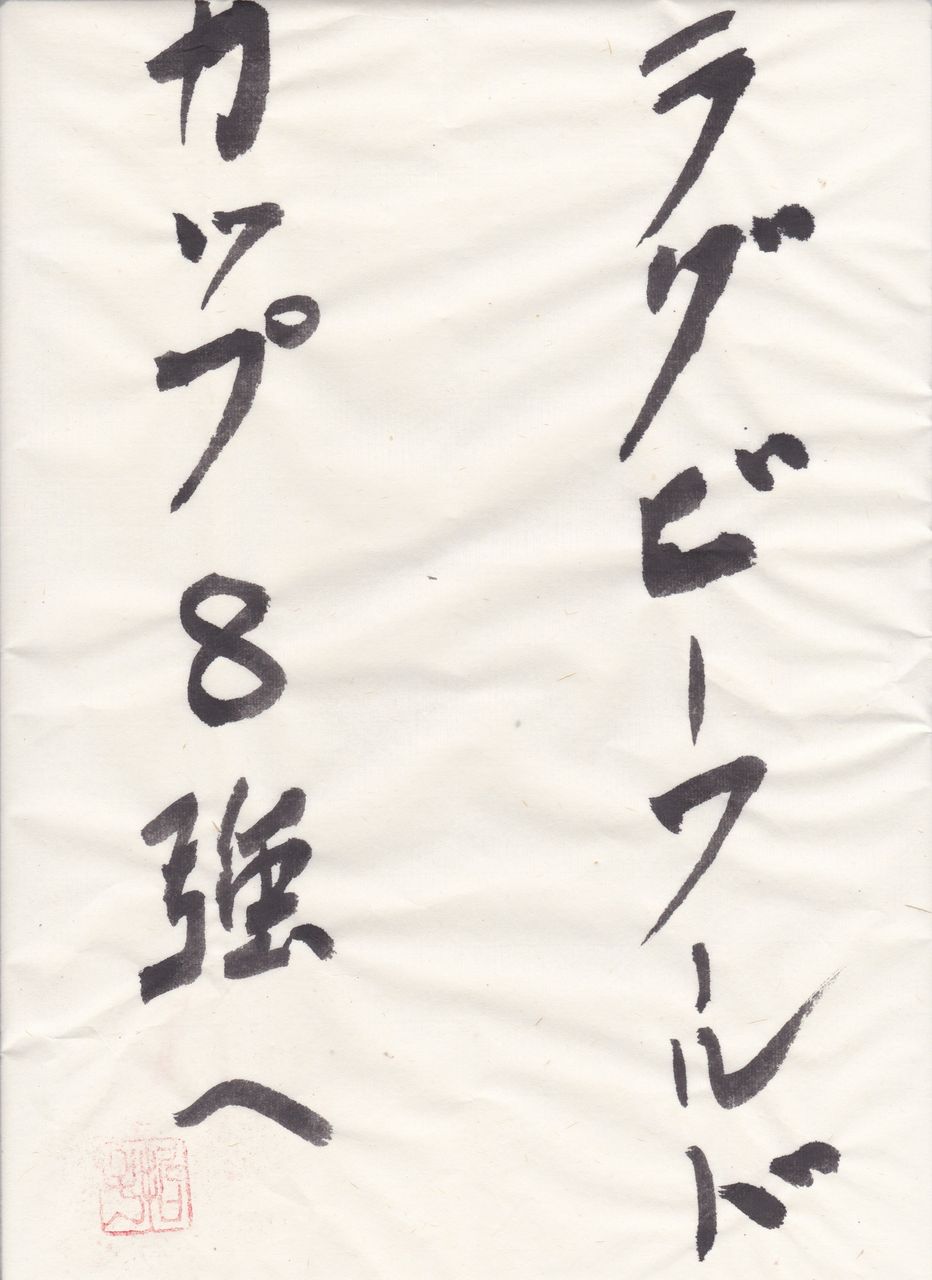 ラグビーワールド
カップ8強へ